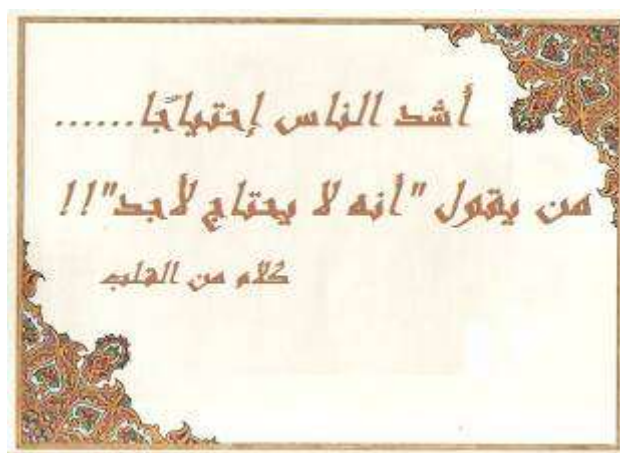 أشد الناس إحتياجًا......
من يقول "أنه لا يحتاج لأحد"!!
كلام من القلب